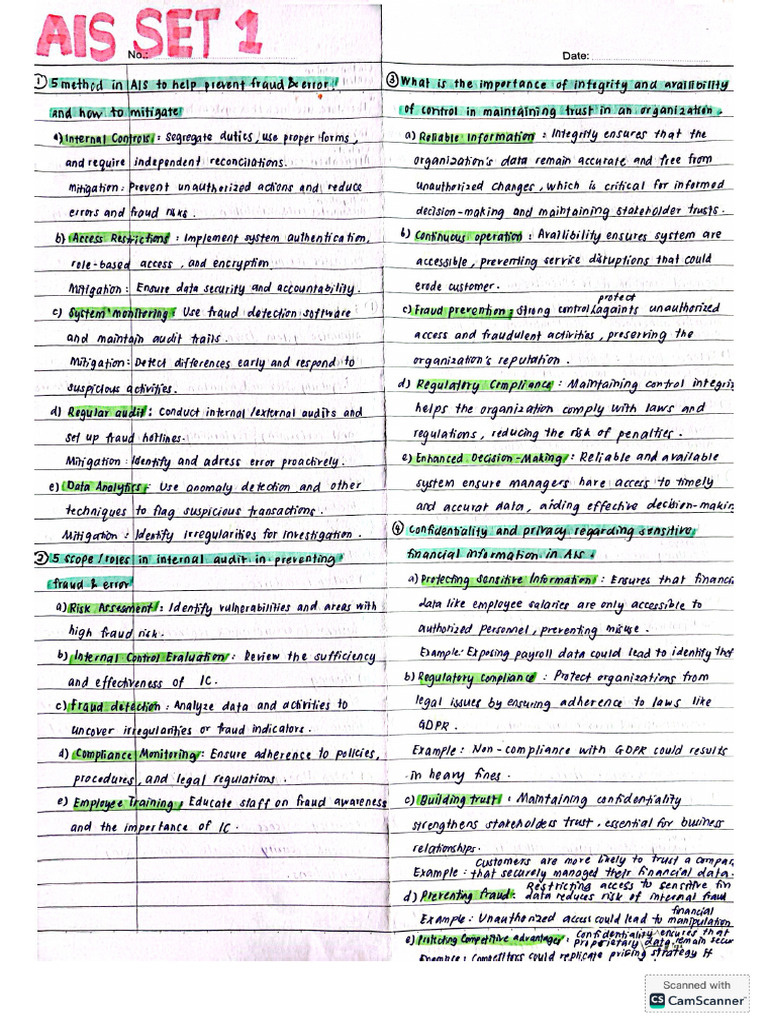 AIS SET 1
No.:
Date:
① 5 method in AIS to help prevent fraud & error
and how to mitigate
a) Internal Controls : Segregate duties, use proper forms,
and require independent reconcilations.
Mitigation : Prevent unauthorized actions and reduce
errors and fraud risks.
b) Access Restrictions : Implement system authentication,
role-based access, and encryption.
Mitigation : Ensure data security and accountability.
c) System monitoring : Use fraud detection software
and maintain audit trails.
Mitigation : Detect differences early and respond to
suspicious activities.
d) Regular audit : Conduct internal /external audits and
set up fraud hotlines.
Mitigation : Identify and adress error proactively.
e) Data Analytics : Use anomaly detection and other
techniques to flag suspicious transactions.
Mitigation : Identify irregularities for investigation.
② 5 scope / roles in internal audit in preventing
fraud & error
a) Risk Assesment : Identify vulnerabilities and areas with
high fraud risk.
b) Internal Control Evaluation : Review the sufficiency
and effectiveness of IC.
c) Fraud detection : Analyze data and activities to
uncover irregularities or fraud indicators.
d) Compliance Monitoring : Ensure adherence to policies,
procedures, and legal regulations.
e) Employee Training : Educate staff on fraud awareness
and the importance of IC.
③ What is the importance of integrity and availibility
of control in maintaining trust in an organization.
a) Reliable Information : Integrity ensures that the
organization's data remain accurate and free from
unauthorized changes, which is critical for informed
decision-making and maintaining stakeholder trusts.
b) Continuous operation : Availibility ensures system are
accessible, preventing service disruptions that could
erode customer.
c) Fraud prevention : Strong control protect againts unauthorized
access and fraudulent activities, preserving the
organization's reputation.
d) Regulatory Compliance : Maintaining control integri
helps the organization comply with laws and
regulations, reducing the risk of penalties.
e) Enhanced Decision-Making : Reliable and available
system ensure managers have access to timely
and accurat data, aiding effective decision-makin
④ Confidentiality and privacy regarding sensitive
financial information in AIS.
a) Protecting Sensitive Information : Ensures that financi
data like employee salaries are only accessible to
authorized personnel, preventing misuse.
Example : Exposing payroll data could lead to identify thef
b) Regulatory Compliance : Protect organizations from
legal issues by ensuring adherence to laws like
GDPR.
Example : Non-compliance with GDPR could results
in heavy fines.
c) Building trust : Maintaining confidentiality
strengthens stakeholders trust, essential for business
relationships.
Customers are more likely to trust a compan
Example : that securely managed their financial data.
Restricting access to sensitive fin
d) Preventing Fraud : data reduces risk of internal fraud
Example : Unauthorized access could lead to financial manipulation
Confidentiality ensures that
e) Protecting Competitive advantages : proprietary data remain secur
Example : Competitors could replicate pricing strategy if
Scanned with
CS CamScanner